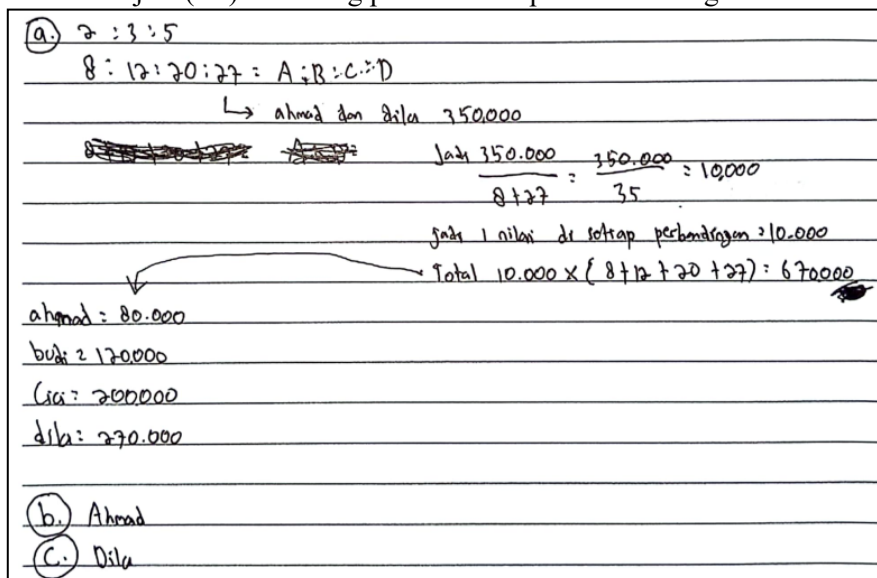 a. 2 : 3 : 5
8 : 12 : 20 : 27 = A : B : C : D
↳ ahmad dan dila 350.000
Jadi 350.000 / 8+27 = 350.000 / 35 = 10,000
jadi 1 nilai di setiap perbandingan = 10.000
Total 10.000 x (8+12+20+27) = 670.000
ahmad = 80.000
budi = 120.000
Cici = 200000
dila = 270.000
b. Ahmad
C. Dila